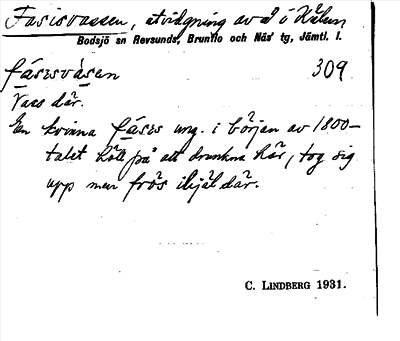 Fasisvassen, utvidgning av å i Kälen
Bodsjö sn Revsunds, Brunflo och Näs tg, Jämtl. l.
fásɩsvàsen 309
Vass där.
En kvinna fásɩs ung. i början av 1800-
talet höll på att drunkna här, tog sig
upp men frös ihjäl där.
C. LINDBERG 1931.